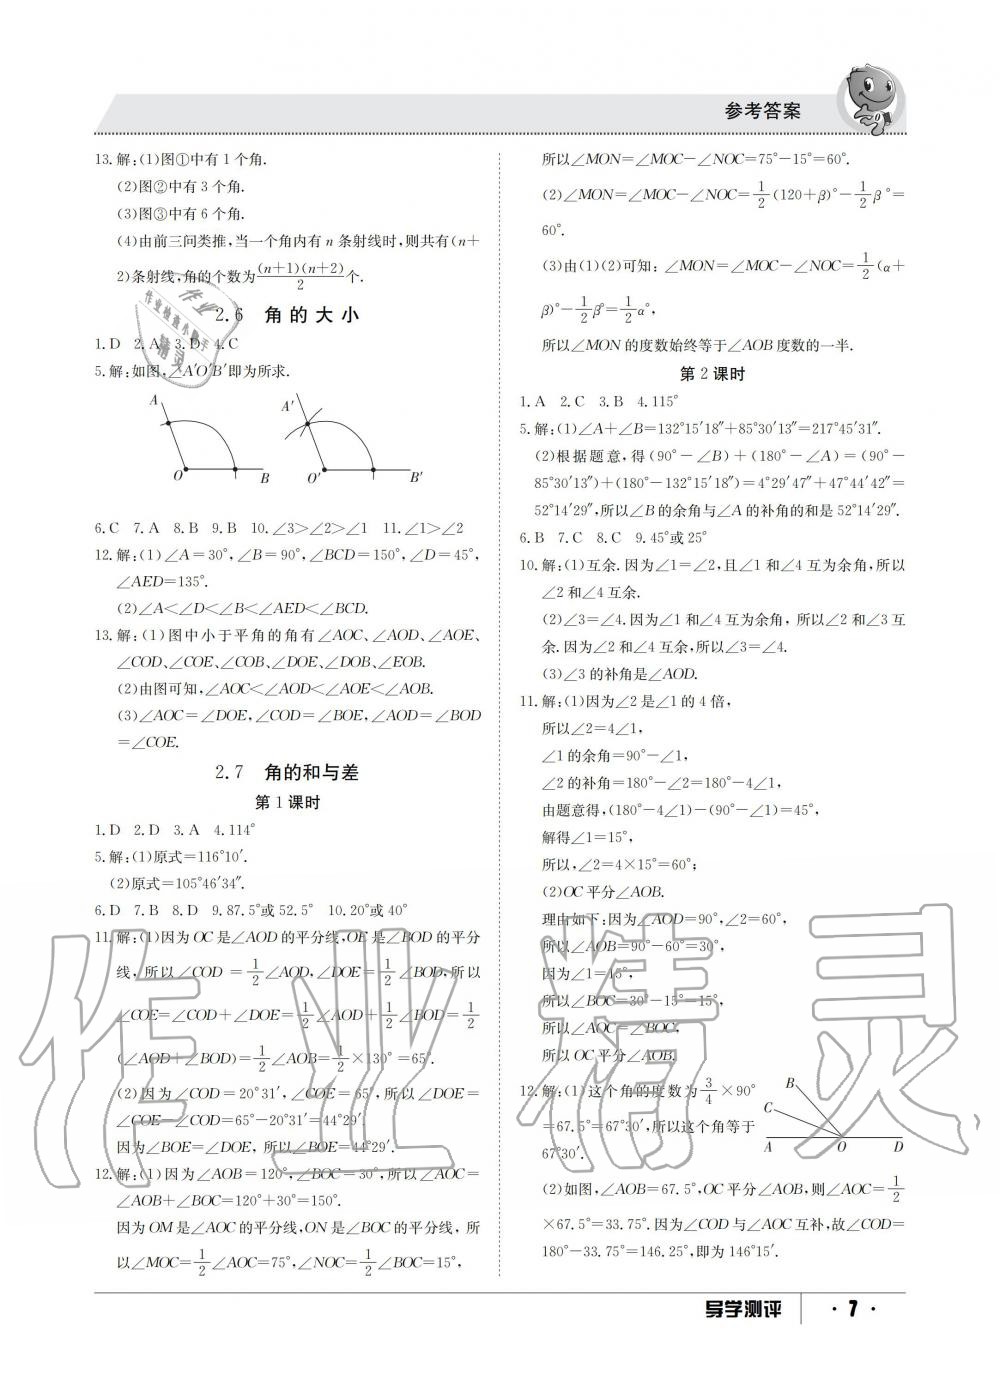 参考答案
13.解:(1)图①中有1个角.
(2)图②中有3个角.
(3)图③中有6个角.
(4)由前三问类推,当一个角内有n条射线时,则共有(n+
2)条射线,角的个数为(n+1)(n+2)/2个.
2.6 角的大小
1.D 2.A 3.D 4.C
5.解:如图,∠A′O′B′即为所求.
A
O
B
A′
O′
B′
6.C 7.A 8.B 9.B 10.∠3>∠2>∠1 11.∠1>∠2
12.解:(1)∠A=30°,∠B=90°,∠BCD=150°,∠D=45°,
∠AED=135°.
(2)∠A<∠D<∠B<∠AED<∠BCD.
13.解:(1)图中小于平角的角有∠AOC、∠AOD、∠AOE、
∠COD、∠COE、∠COB、∠DOE、∠DOB、∠EOB.
(2)由图可知,∠AOC<∠AOD<∠AOE<∠AOB.
(3)∠AOC=∠DOE,∠COD=∠BOE,∠AOD=∠BOD
=∠COE.
2.7 角的和与差
第1课时
1.D 2.D 3.A 4.114°
5.解:(1)原式=116°10′.
(2)原式=105°46′34″.
6.D 7.B 8.D 9.87.5°或52.5° 10.20°或40°
11.解:(1)因为OC是∠AOD的平分线,OE是∠BOD的平分
线,所以∠COD=1/2∠AOD,∠DOE=1/2∠BOD,所以
∠COE=∠COD+∠DOE=1/2∠AOD+1/2∠BOD=1/2
(∠AOD+∠BOD)=1/2∠AOB=1/2×130°=65°.
(2)因为∠COD=20°31′,∠COE=65°,所以∠DOE=
∠COE-∠COD=65°-20°31′=44°29′.
因为∠BOE=∠DOE,所以∠BOE=44°29′.
12.解:(1)因为∠AOB=120°,∠BOC=30°,所以∠AOC=
∠AOB+∠BOC=120°+30°=150°.
因为OM是∠AOC的平分线,ON是∠BOC的平分线,所
以∠MOC=1/2∠AOC=75°,∠NOC=1/2∠BOC=15°,
所以∠MON=∠MOC-∠NOC=75°-15°=60°.
(2)∠MON=∠MOC-∠NOC=1/2(120+β)°-1/2β°=
60°.
(3)由(1)(2)可知:∠MON=∠MOC-∠NOC=1/2(α+
β)°-1/2β°=1/2α°,
所以∠MON的度数始终等于∠AOB度数的一半.
第2课时
1.A 2.C 3.B 4.115°
5.解:(1)∠A+∠B=132°15′18″+85°30′13″=217°45′31″.
(2)根据题意,得(90°-∠B)+(180°-∠A)=(90°-
85°30′13″)+(180°-132°15′18″)=4°29′47″+47°44′42″=
52°14′29″,所以∠B的余角与∠A的补角的和是52°14′29″.
6.B 7.C 8.C 9.45°或25°
10.解:(1)互余.因为∠1=∠2,且∠1和∠4互为余角,所以
∠2和∠4互余.
(2)∠3=∠4.因为∠1和∠4互为余角,所以∠2和∠3互
余.因为∠2和∠4互余,所以∠3=∠4.
(3)∠3的补角是∠AOD.
11.解:(1)因为∠2是∠1的4倍,
所以∠2=4∠1,
∠1的余角=90°-∠1,
∠2的补角=180°-∠2=180°-4∠1,
由题意得,(180°-4∠1)-(90°-∠1)=45°,
解得∠1=15°,
所以,∠2=4×15°=60°;
(2)OC平分∠AOB.
理由如下:因为∠AOD=90°,∠2=60°,
所以∠AOB=90°-60°=30°,
因为∠1=15°,
所以∠BOC=30°-15°=15°,
所以∠AOC=∠BOC,
所以OC平分∠AOB.
12.解:(1)这个角的度数为3/4×90°
=67.5°=67°30′,所以这个角等于
67°30′.
B
C
A
O
D
(2)如图,∠AOB=67.5°,OC平分∠AOB,则∠AOC=1/2
×67.5°=33.75°.因为∠COD与∠AOC互补,故∠COD=
180°-33.75°=146.25°,即为146°15′.
导学测评
·7·
作业精灵
作业检查小助手
作业
精灵